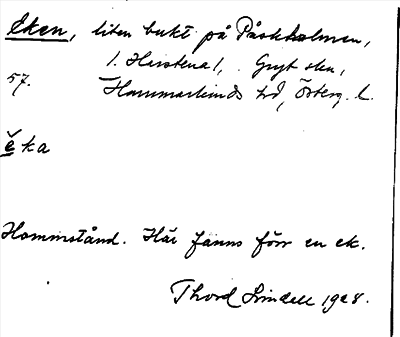 Eken, liten bukt på Påskholmen,
1. Hirstena 1, Gryt skn,
57. Hammarkinds hd, Österg. L.
ĕka
Hommstånd. Här fanns förr en ek.
Thord Lindell 1928.